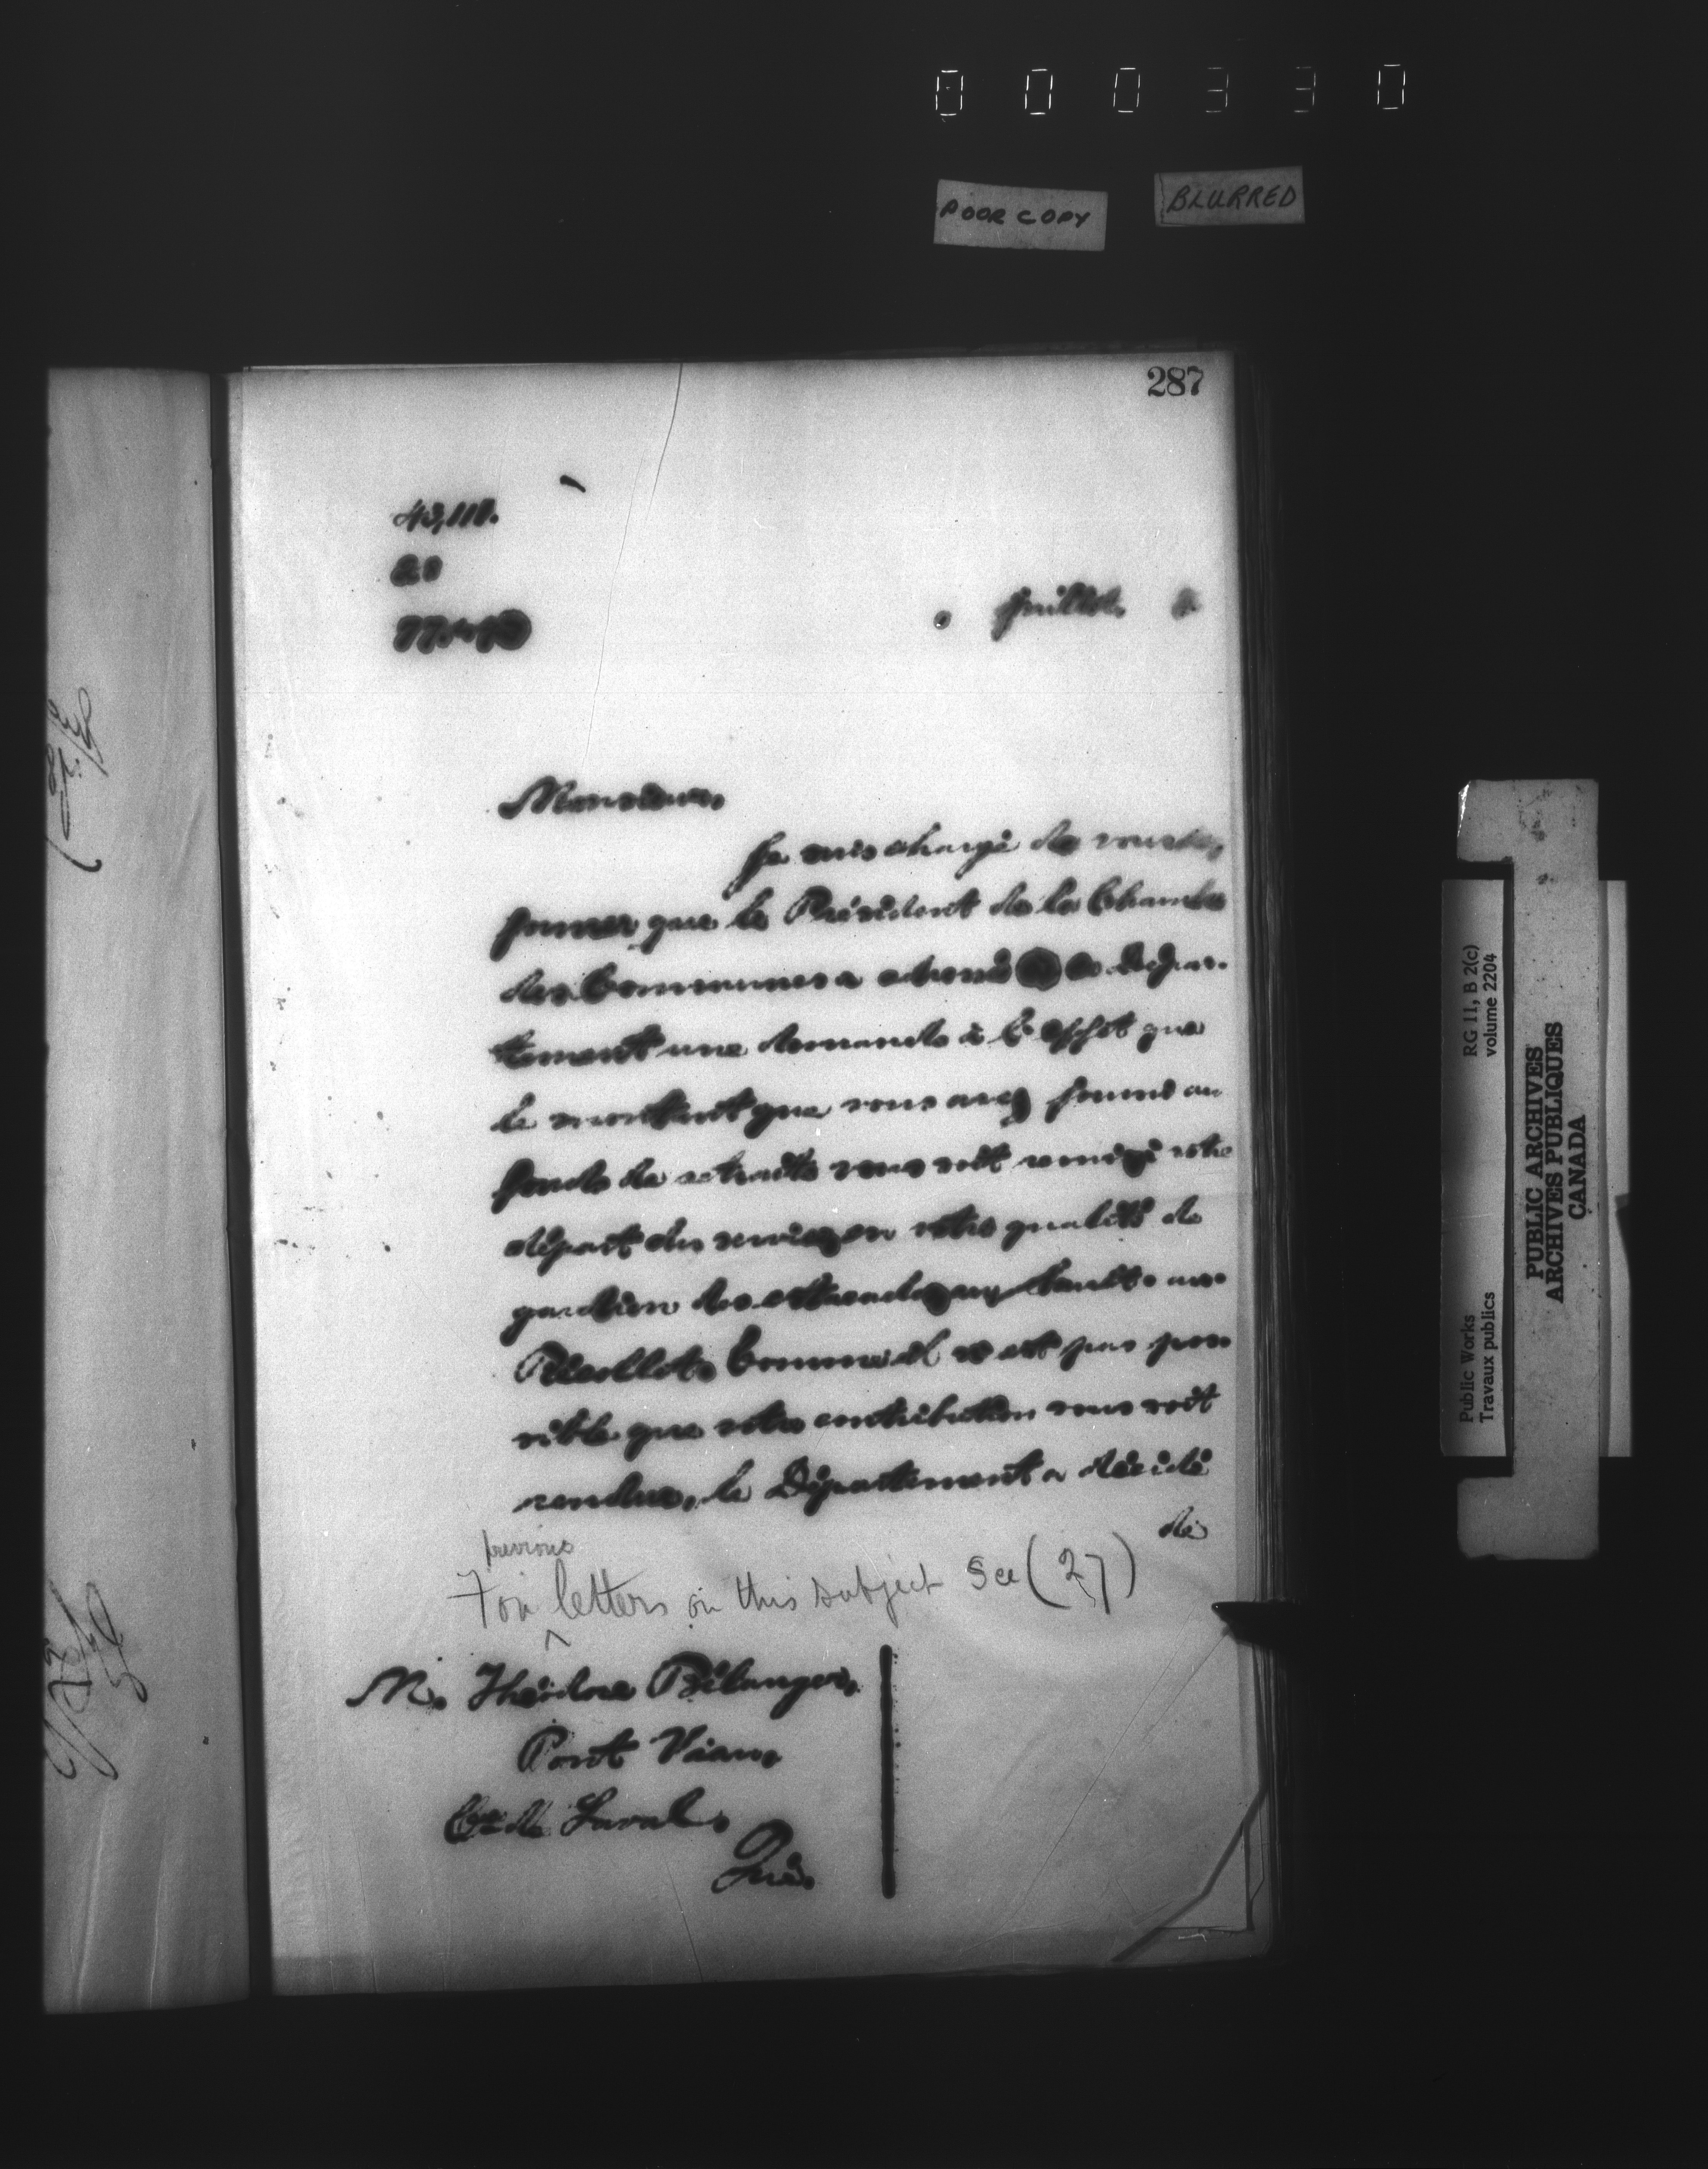 000330
POOR COPY
BLURRED
287
43,111.
Juillet
Monsieur,
Je suis chargé de vous in
former que le Président de la Chambre
des Communes a adressé ce Dépar-
tement une demande à l'effet que
le montant que vous avez fourni au
fonds de retraite vous soit remis à votre
départ du service en votre qualité de
gardien des estacades au
Récollet. Comme il n'est pas pos
sible que votre contribution vous soit
rendue, le Département a décidé
de
previous
For letters on this subject See (27)
^
M. Théodore Bélanger,
Pont Viau,
Cté de Laval,
Qué.
Public Works RG 11, B 2(c)
Travaux publics volume 2204
PUBLIC ARCHIVES
ARCHIVES PUBLIQUES
CANADA